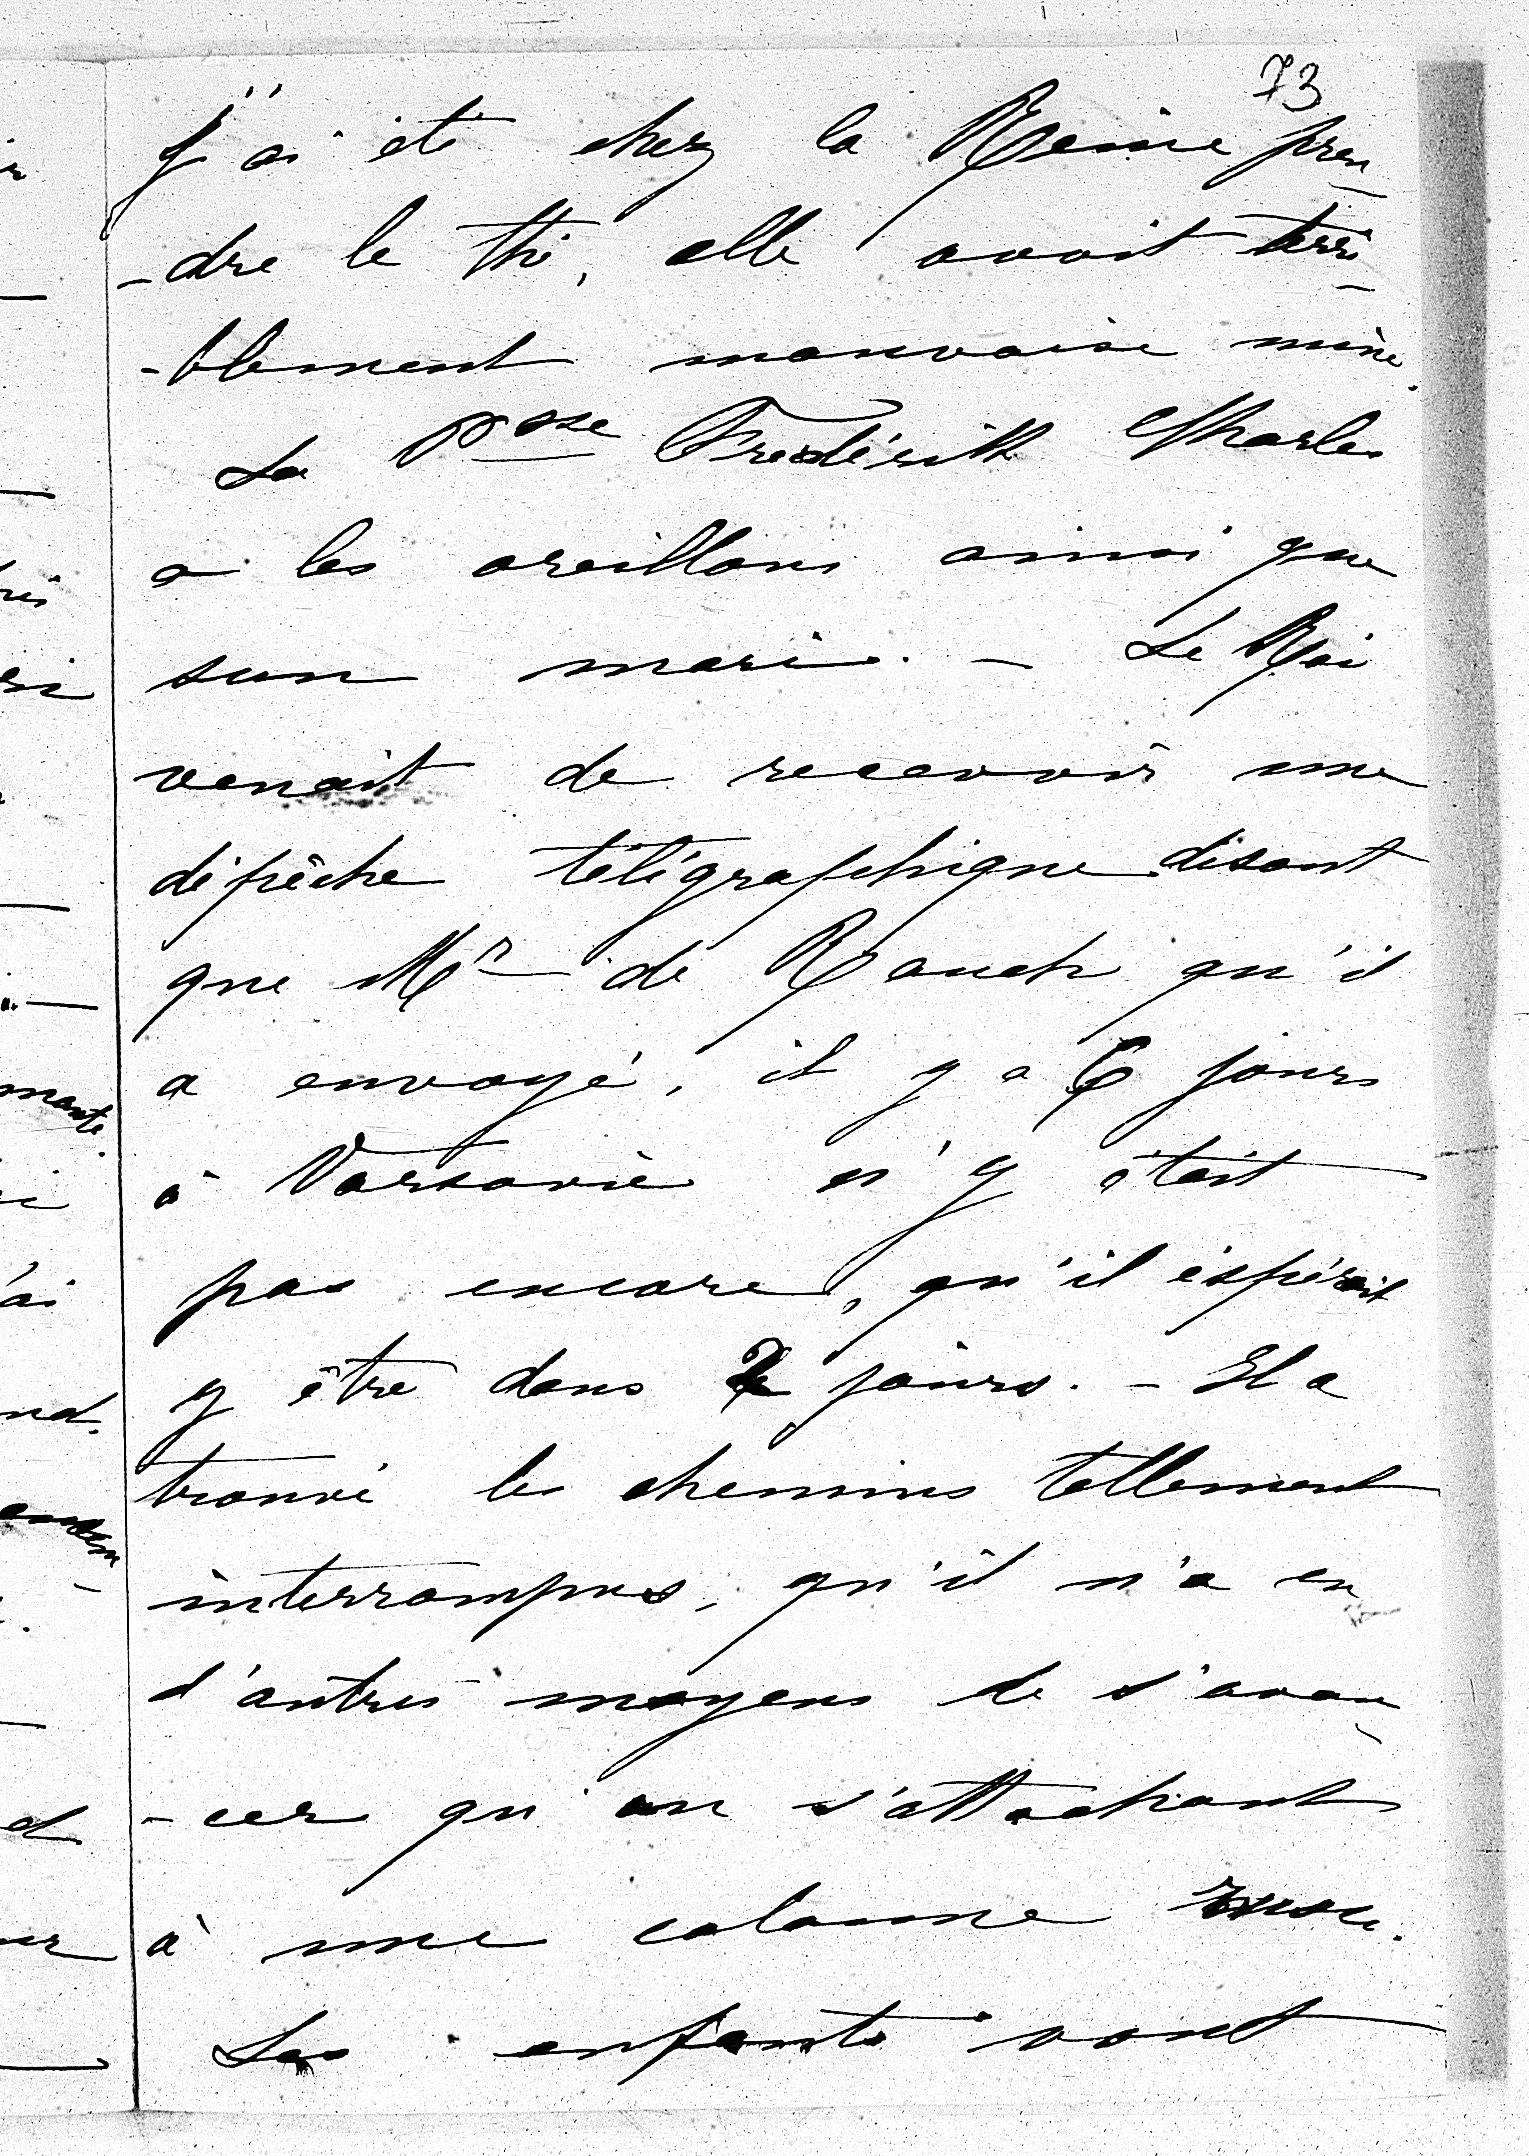 73
J'ai été chez la Reine pren-
-dre le thé, elle avait terri-
-blement mauvaise mine.
La Psse Frédérik Charles
a les oreillons ainsi que
sun mari. - Le Roi
venait de recevoir une
dépêche télégraphique disant
que Mr de Rauch qu'il
a envoyé, il y a 6 jours
à Varsovie n'y était
pas encore, qu'il éspérait
y être dans 2 jours. - Il a
trouvé les chemins tellement
interrompus, qu'il n'a eu
d'autres moyens de s'avan-
-cer qu'en s'attachant
à une colonne russe.
Les enfants vont